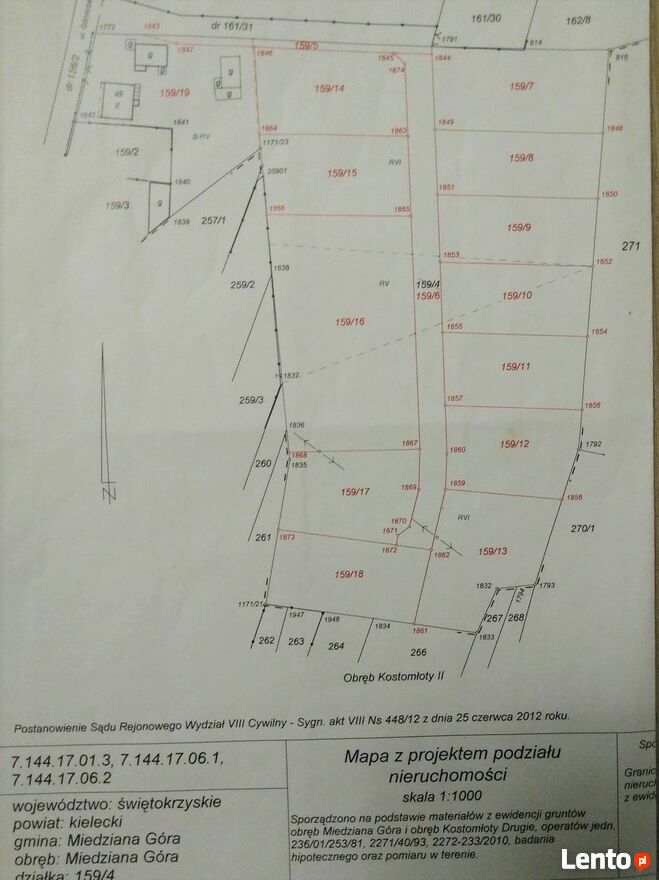 dr 161/31
161/30
162/8
1772
1843
1847
159/5
1846
1845
1874
1844
1791
814
815
dr 156/2
g
g
g
g
g
g
49
II
159/19
159/14
159/7
1842
1841
B-RV
1864
1171/23
1863
1849
1848
159/2
159/15
RVI
159/8
25901
1840
1851
1850
159/3
g
1839
257/1
1866
1865
159/9
271
1853
1852
1838
259/2
RV
159/4
159/6
159/10
159/16
1855
1854
159/11
1837
259/3
1857
1856
1836
1868
1835
1867
1860
159/12
1792
260
159/17
1869
1859
1858
1870
1871
1872
RVI
270/1
261
1873
1862
159/13
159/18
1832
1794
1793
1171/21
1947
1948
1834
1861
1833
267
268
262
263
264
266
N
Obręb Kostomłoty II
Postanowienie Sądu Rejonowego Wydział VIII Cywilny - Sygn. akt VIII Ns 448/12 z dnia 25 czerwca 2012 roku.
7.144.17.01.3, 7.144.17.06.1,
7.144.17.06.2
województwo: świętokrzyskie
powiat: kielecki
gmina: Miedziana Góra
obręb: Miedziana Góra
działka: 159/4
Mapa z projektem podziału
nieruchomości
skala 1:1000
Sporządzono na podstawie materiałów z ewidencji gruntów
obręb Miedziana Góra i obręb Kostomłoty Drugie, operatów jedn.
236/01/253/81, 2271/40/93, 2272-233/2010, badania
hipotecznego oraz pomiaru w terenie.
Spo
Granic
nieruch
z ewid
Lento.pl